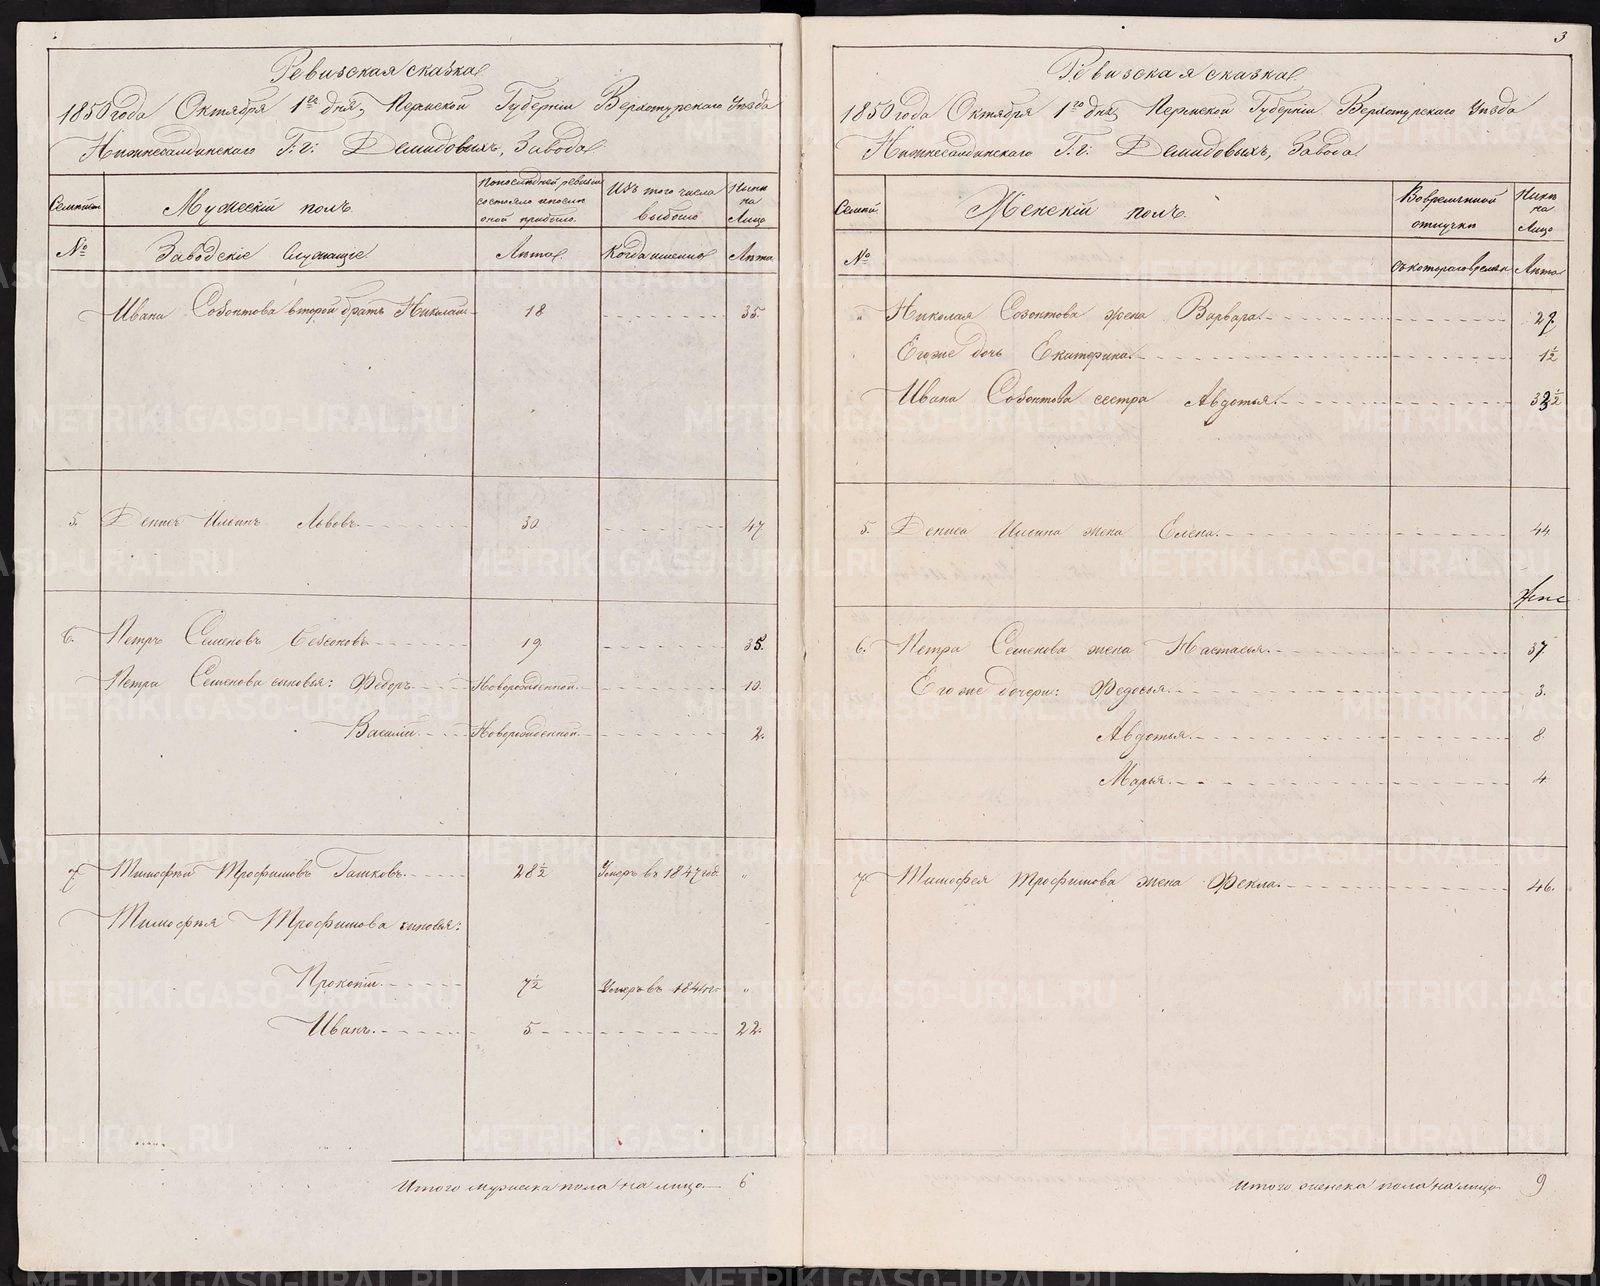 Ревизская сказка
1850 года Октября 1го дня, Пермской Губернiи Верхотурскаго Уѣзда
Нижнесалдинскаго Г. г: Демидовыхъ, Завода.
Семьи
Мужескiй полъ.
По последней ревизiи состояло и после оной прибыло.
Изъ того числа выбыло
Нынѣ на Лицо
№
Заводскiе Служащiе.
Лѣта.
Когда именно
Лѣта
Ивана Созонтова второй братъ Николай 18 35.
5. Денисъ Ильинъ Львовъ. 30 47
6. Петръ Семеновъ 19. 35.
Петра Семенова сыновья: Федоръ Новорожденной. 10.
Василiй. Новорожденной. 2.
7 Тимофей Трофимовъ Гашковъ. 28½ Умеръ въ 1847 год. „
Тимофѣя Трофимова сыновья:
Прокопiй. 7½ Умеръ въ 1841 г. „
Иванъ. 5 22.
Итого мужеска пола на лицо 6
3
Ревизская сказка
1850 года Октября 1го дня, Пермской Губернiи Верхотурскаго Уѣзда
Нижнесалдинскаго Г. г: Демидовыхъ, Завода.
Семьи.
Женскiй полъ.
Во временной отлучки
Нынѣ на Лицо
№
Съ котораго времени
Лѣта
„ Николая Созонтова жена Варвара. 27.
Его же дочь Екатерина. 1½
Ивана Созонтова сестра Авдотья. 32½
5. Дениса Ильина жена Елена. 44
6. Петра Семенова жена Настасья. 37
Его же дочери: Федосья. 3.
Авдотья. 8.
Марья. 4
7. Тимофея Трофимова жена Фекла. 46.
Итого женска пола на лицо 9
METRIKI.GASO-URAL.RU